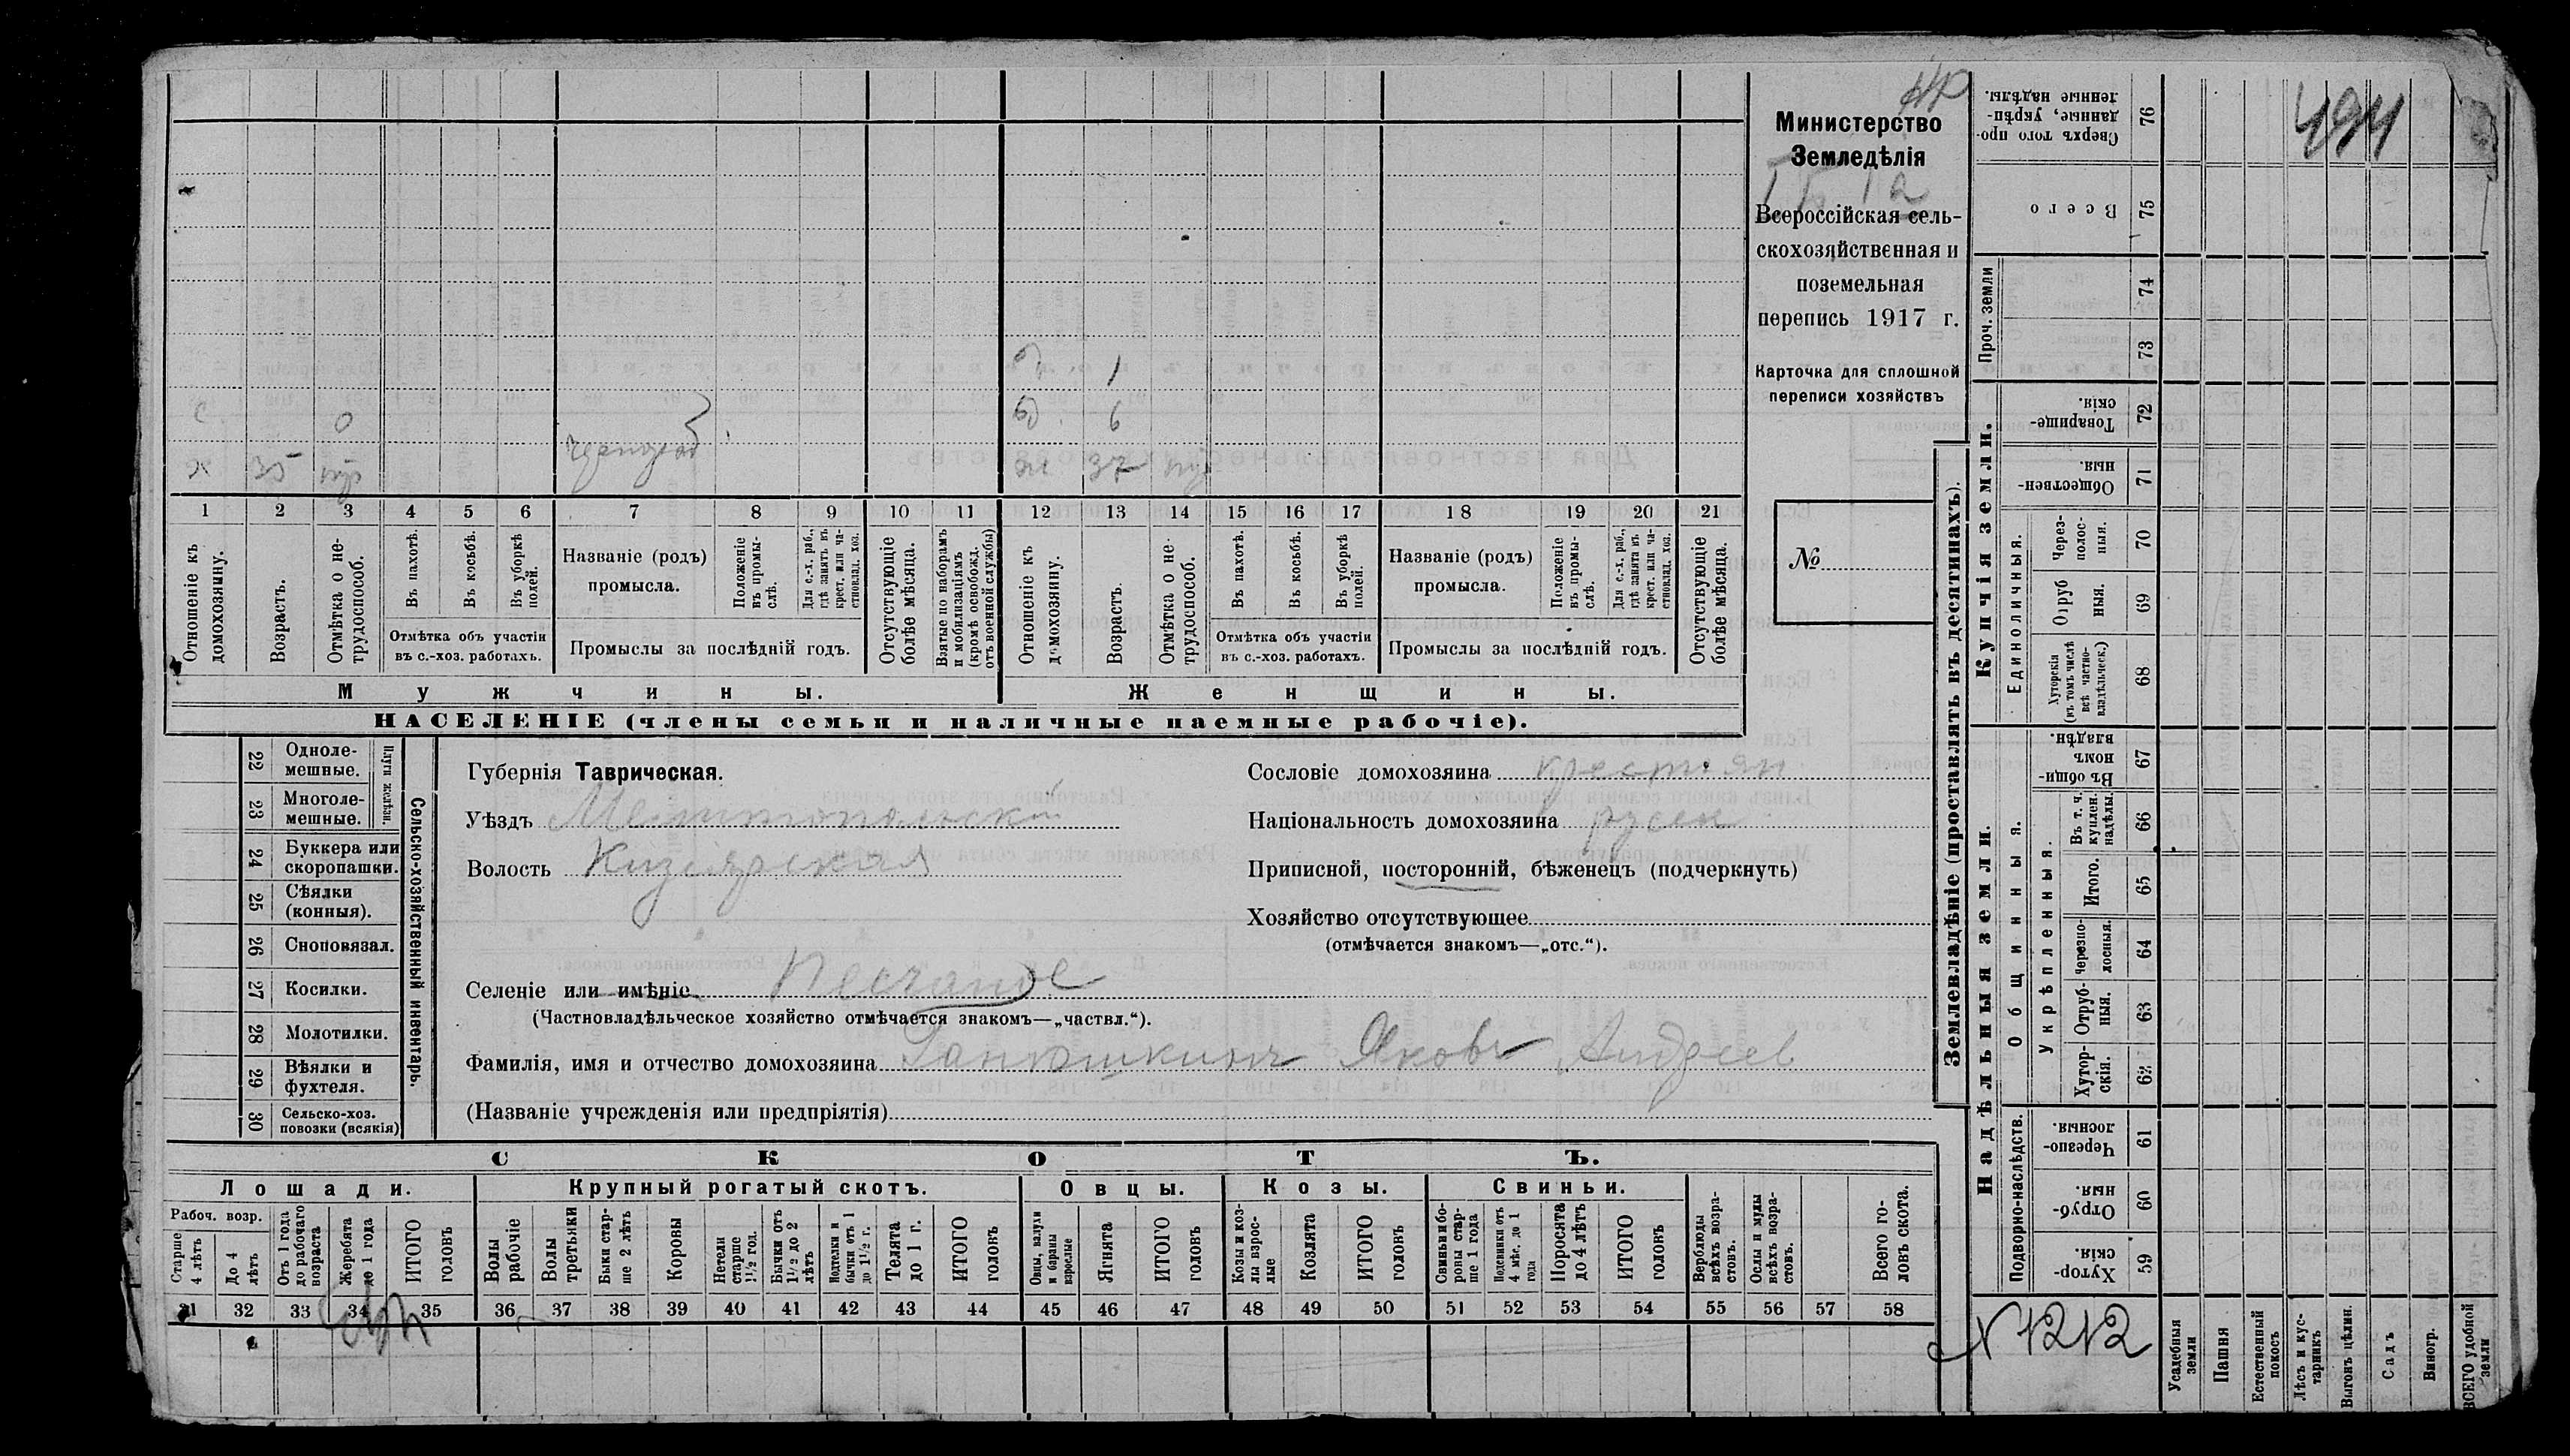 494
Министерство
Земледѣлія
Всероссійская сель-
скохозяйственная и
поземельная
перепись 1917 г.
Карточка для сплошной
переписи хозяйствъ
№
д. 1
с 0 д. 6
х 35 чернораб ж 37
1 2 3 4 5 6 7 8 9 10 11 12 13 14 15 16 17 18 19 20 21
Отношеніе къ домохозяину.
Возрастъ.
Отмѣтка о не-трудоспособ.
Въ пахотѣ.
Въ косьбѣ.
Въ уборкѣ полей.
Отмѣтка объ участіи
въ с.-хоз. работахъ.
Названіе (родъ)
промысла.
Положеніе въ промы-слѣ.
Для с.-х. раб., гдѣ занятъ въ крест. или ча-стновлад. хоз.
Промыслы за послѣдній годъ.
Отсутствующіе болѣе мѣсяца.
Взятые по наборамъ и мобилизаціямъ (кромѣ освобожд. отъ военной службы)
Отношеніе къ домохозяину.
Возрастъ.
Отмѣтка о не-трудоспособ.
Въ пахотѣ.
Въ косьбѣ.
Въ уборкѣ полей.
Отмѣтка объ участіи
въ с.-хоз. работахъ.
Названіе (родъ)
промысла.
Положеніе въ промы-слѣ.
Для с.-х. раб., гдѣ занята въ крест. или ча-стновлад. хоз.
Промыслы за послѣдній годъ.
Отсутствующіе болѣе мѣсяца.
Мужчины. Женщины.
НАСЕЛЕНІЕ (члены семьи и наличные наемные рабочіе).
22 Одноле-мешные.
23 Многоле-мешные.
Плуги желѣзн.
24 Буккера или скоропашки.
25 Сѣялки (конныя).
26 Сноповязал.
27 Косилки.
28 Молотилки.
29 Вѣялки и фухтеля.
30 Сельско-хоз. повозки (всякія)
Сельско-хозяйственный инвентарь.
Губернія Таврическая.
Уѣздъ Мелитопольскій
Волость Кизіярская
Селеніе или имѣніе Песчаное
(Частновладѣльческое хозяйство отмѣчается знакомъ—„частвл.“).
Фамилія, имя и отчество домохозяина Ганюшкинъ Яковъ Андреев
(Названіе учрежденія или предпріятія)
Сословіе домохозяина крестьян
Національность домохозяина русск
Приписной, посторонній, бѣженецъ (подчеркнуть)
Хозяйство отсутствующее
(отмѣчается знакомъ—„отс.“).
СКОТЪ.
Лошади. Крупный рогатый скотъ. Овцы. Козы. Свиньи.
Рабоч. возр.
Старше 4 лѣтъ
До 4 лѣтъ
Отъ 1 года до рабочаго возраста
Жеребята до 1 года
ИТОГО головъ
Волы рабочіе
Волы третьяки
Быки стар-ше 2 лѣтъ
Коровы
Нетели старше 1½ год.
Бычки отъ 1½ до 2 лѣтъ
Подтелки и бычки отъ 1 до 1½ г.
Телята до 1 г.
ИТОГО головъ
Овцы, валухи и бараны взрослые
Ягнята
ИТОГО головъ
Козы и коз-лы взрос-лые
Козлята
ИТОГО головъ
Свиньи и бо-ровы стар-ше 1 года
Подсвинки отъ 4 мѣс. до 1 года
Поросята до 4 лѣтъ
ИТОГО головъ
Верблюды всѣхъ возра-стовъ.
Ослы и мулы всѣхъ возра-стовъ.
Всего го-ловъ скота.
31 32 33 34 35 36 37 38 39 40 41 42 43 44 45 46 47 48 49 50 51 52 53 54 55 56 57 58
Землевладѣніе (проставлять въ десятинахъ).
Надѣльныя земли.
Купчія земли.
Проч. земли
Подворно-наслѣдств.
Общинныя.
Укрѣпленныя.
Единоличныя.
76 Сверхъ того про-данные, укрѣп-ленные надѣлы.
75 Всего
74
73
72 Товарище-скія.
71 Обществен-ныя.
70 Через-полос-ныя.
69 Отруб ныя.
68 Хуторскія (въ томъ числѣ всѣ частно-владѣльческ.)
67 Въ общи-номъ владѣн.
66 Въ т. ч. куплен. надѣлы.
65 Итого.
64 Черезпо-лосныя.
63 Отруб-ныя.
62 Хутор-скія.
61 Черезпо-лосныя.
60 Отруб-ныя.
59 Хутор-скія.
Усадебныя земли
Пашня
Естественный покосъ
Лѣсъ и кус-тарникъ
Выгонъ цѣлин.
Садъ
Виногр.
ВСЕГО удобной земли